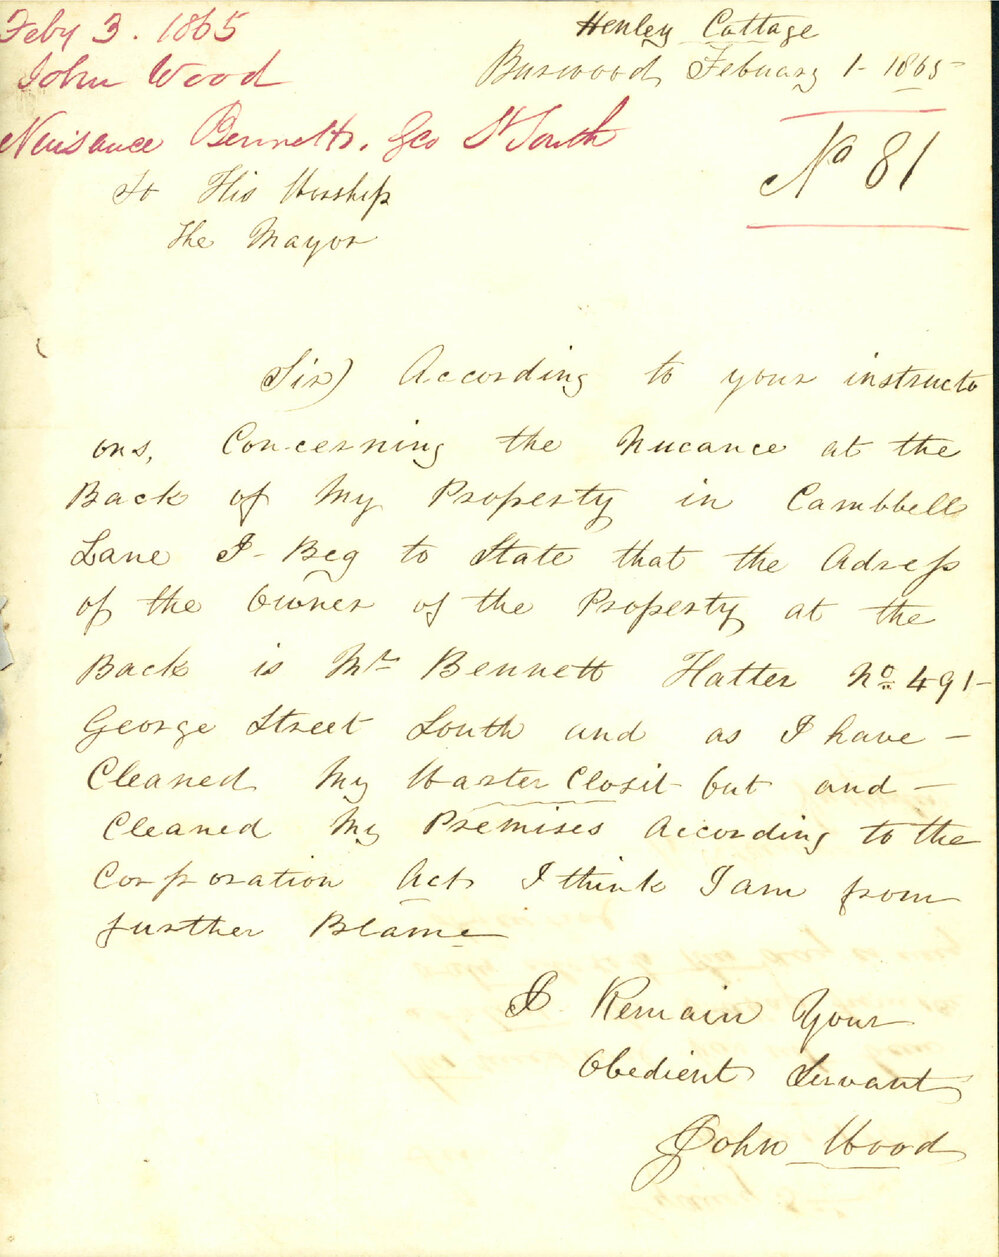 Feby 3. 1865
John Wood
Nuisance Bennetts. Geo St South
Henley Cottage
Burwood February 1 - 1865
No 81
To His Worship
The Mayor
Sir) According to your instructi
ons, Concerning the Nucance at the
Back of My Property in Cambbell
Lane I - Beg to State that the Adress
of the Owner of the Property at the
Back is Mr Bennett Hatter No. 491 -
George Street South and as I have -
Cleaned My Warter Closit out and -
Cleaned My Premises According to the
Corporation Act I think I am from
further Blame
I Remain Your
Obedient Servant
John Wood